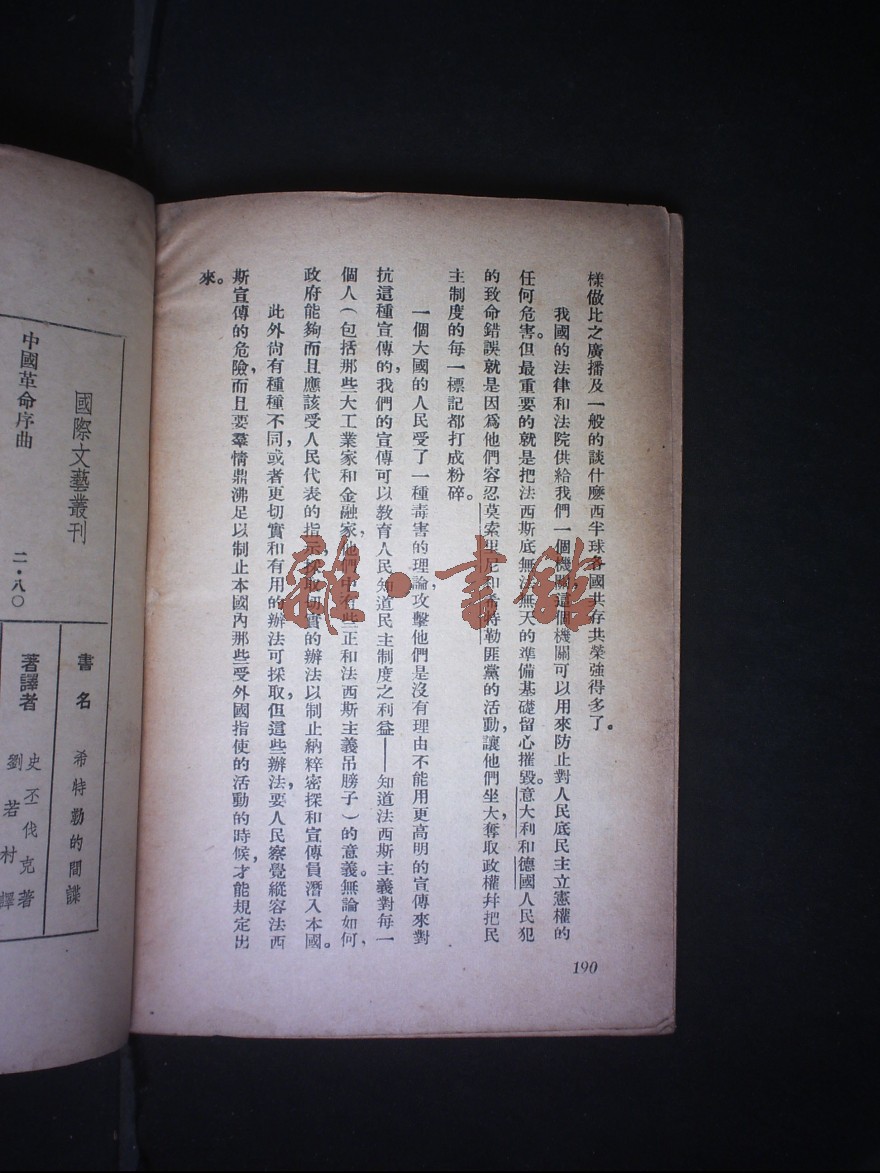 樣做比之廣播及一般的談什麼西半球各國共存共榮強得多了。
我國的法律和法院供給我們一個機關這個機關可以用來防止對人民底民主立憲權的
任何危害。但最重要的就是把法西斯底無法無天的準備基礎留心摧毀。意大利和德國人民犯
的致命錯誤就是因爲他們容忍莫索里尼和希特勒匪黨的活動,讓他們坐大,奪取政權幷把民
主制度的每一標記都打成粉碎。
一個大國的人民受了一種毒害的理論攻擊,他們是沒有理由不能用更高明的宣傳來對
抗這種宣傳的,我們的宣傳可以教育人民知道民主制度之利益——知道法西斯主義對每一
個人(包括那些大工業家和金融家,他們中有些正和法西斯主義吊膀子)的意義。無論如何,
政府能夠而且應該受人民代表的指示,採取切實的辦法以制止納粹密探和宣傳員潛入本國。
此外尚有種種不同,或者更切實和有用的辦法可採取,但這些辦法,要人民察覺縱容法西
斯宣傳的危險,而且要羣情鼎沸足以制止本國內那些受外國指使的活動的時候,才能規定出
來。
190
國際文藝叢刊
中國革命序曲 二·八〇
書名 希特勒的間諜
著譯者 史丕伐克著
劉若村譯
雜·書館